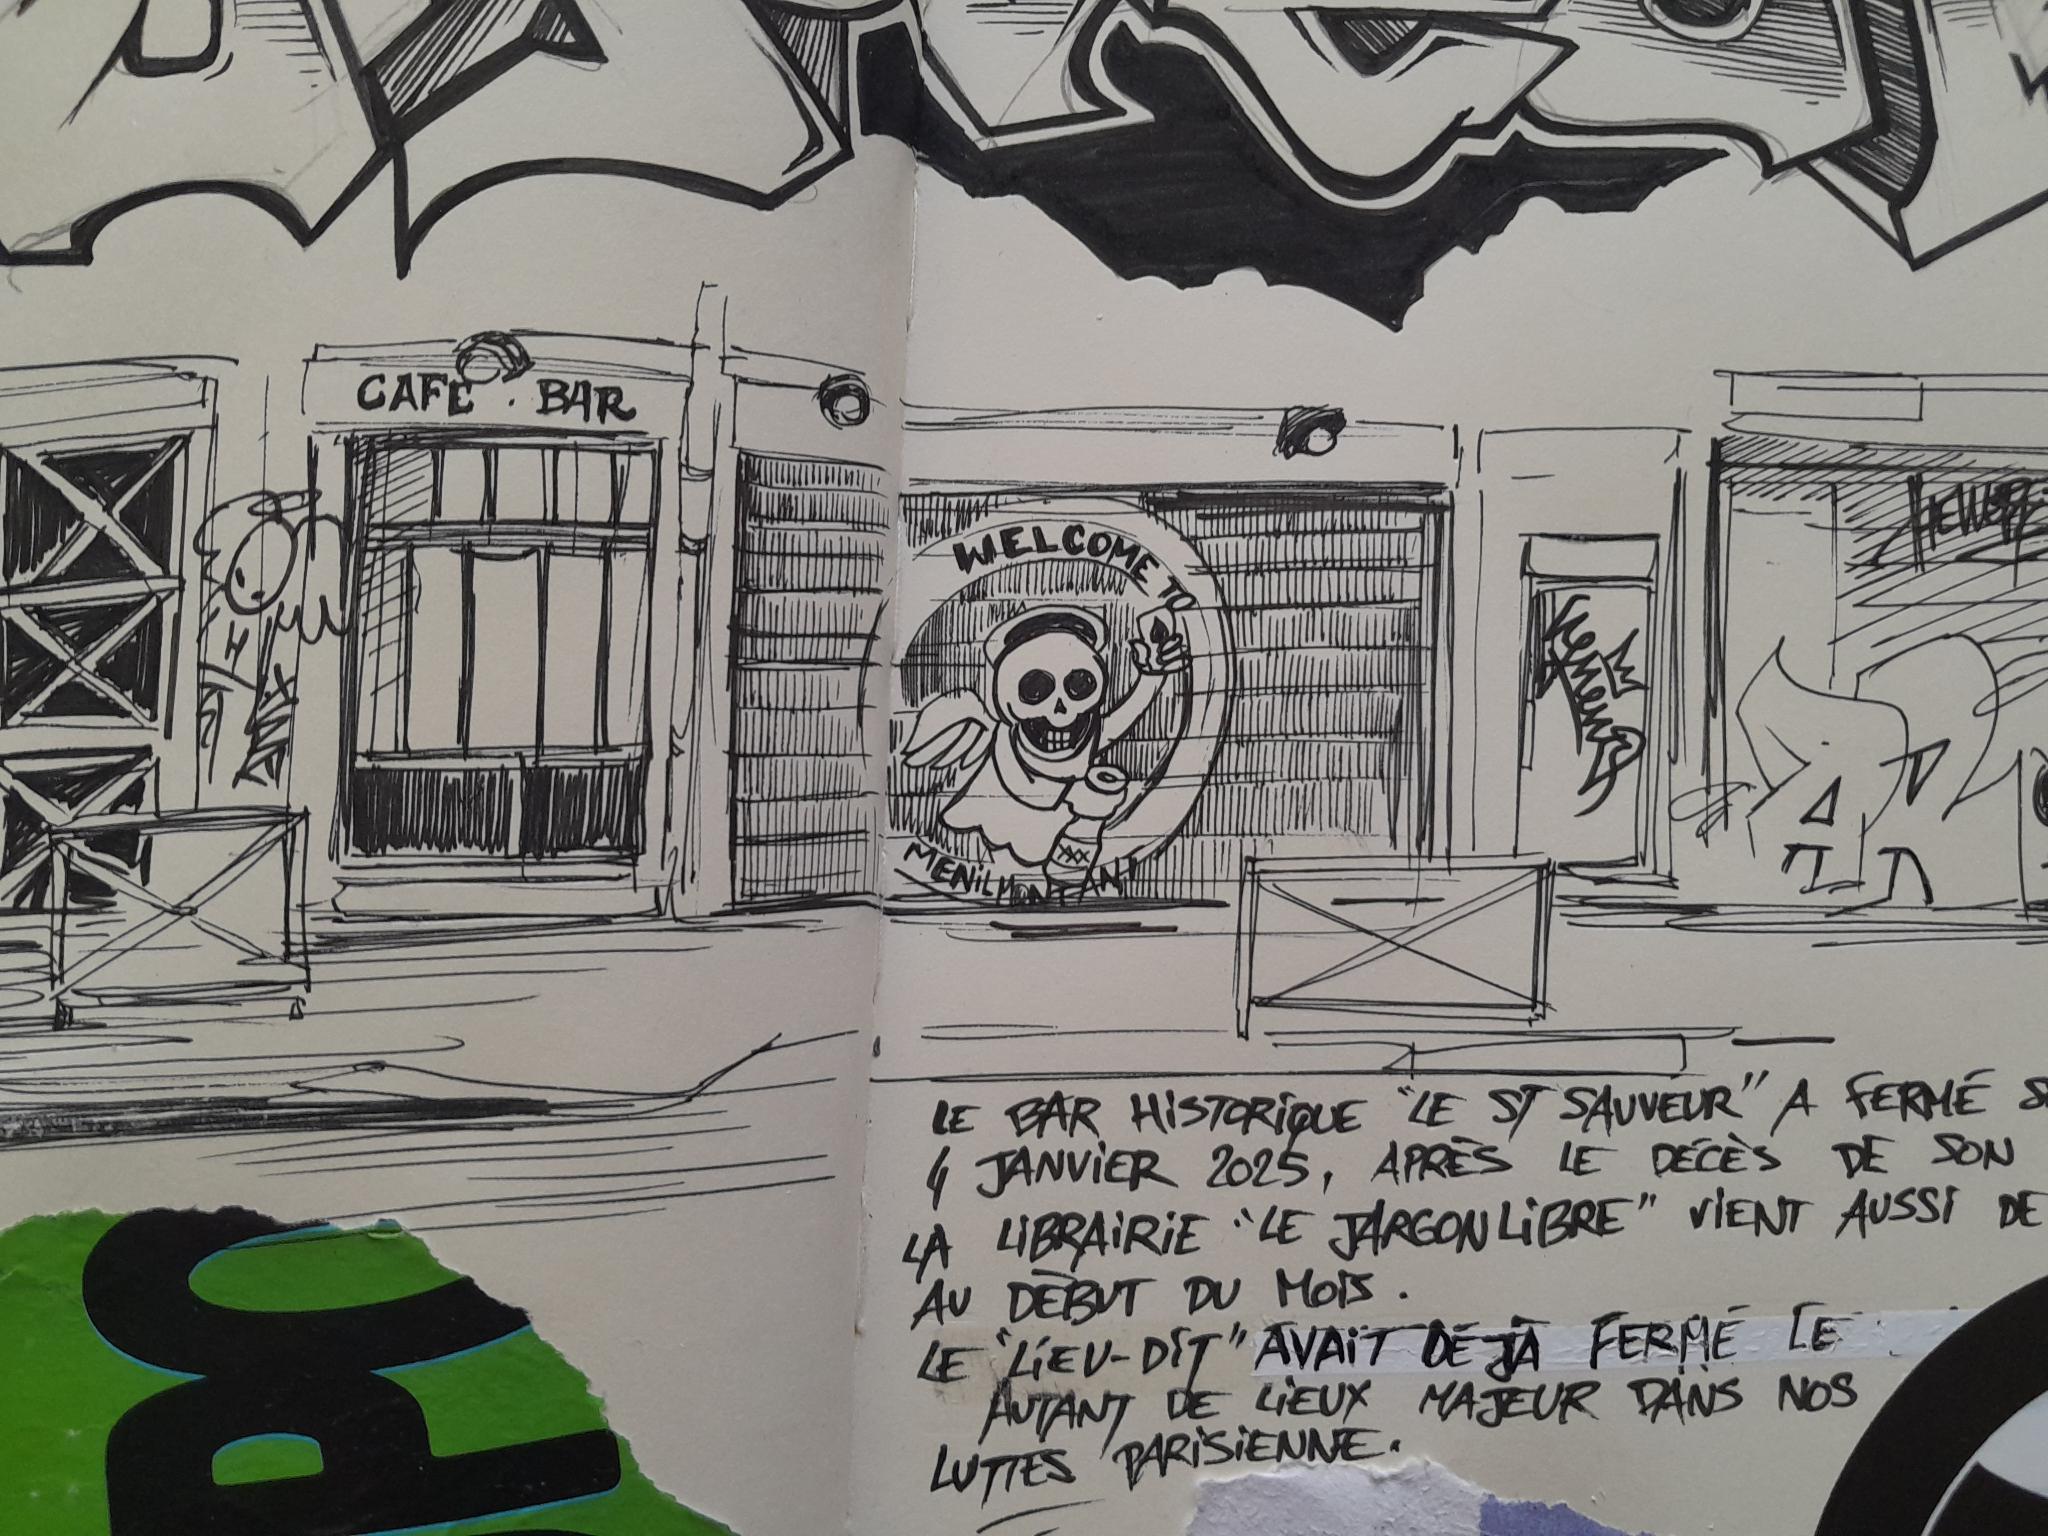 CAFÉ . BAR
WELCOME TO
MENILMONTANT
LE BAR HISTORIQUE "LE ST SAUVEUR" A FERMÉ
4 JANVIER 2025, APRÈS LE DÉCÈS DE SON
LA LIBRAIRIE "LE JARGON LIBRE" VIENT AUSSI DE
AU DÉBUT DU MOIS.
LE "LIEU-DIT" AVAIT DÉJÀ FERMÉ LE
AUTANT DE LIEUX MAJEUR DANS NOS
LUTTES PARISIENNE.